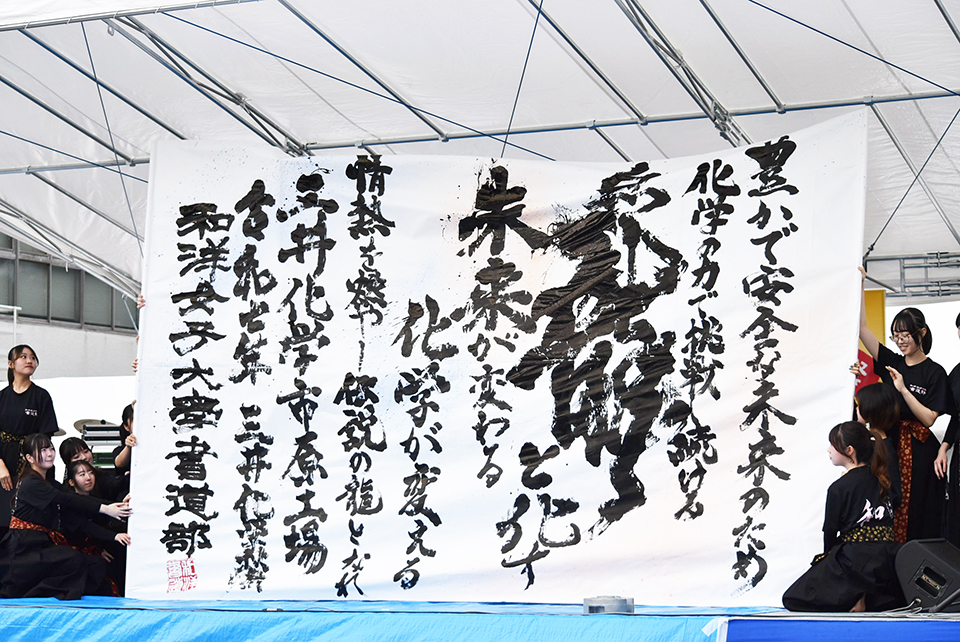 豊かで安全な未来のため
化学の力で挑戦を続ける
と化す
未来が変わる
化学が変える
情熱を燃やし 伝説の龍となれ
三井化学市原工場
令和七年 三井化学
和洋女子大学書道部
和